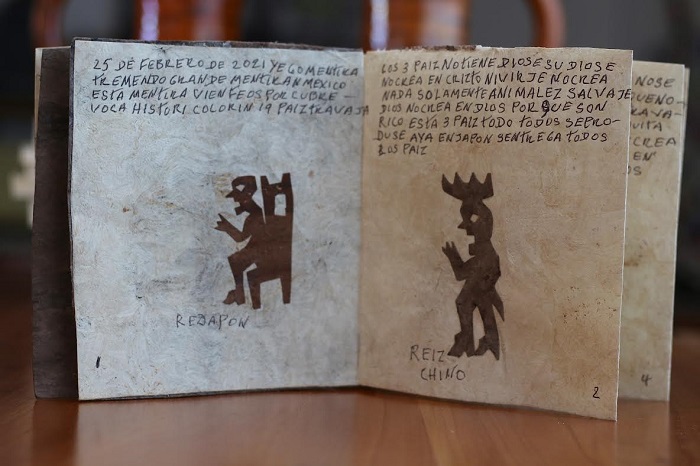 25 DE FEBRERO DE 2021 YEGO MENTIRA
TREMENDO GRANDE MENTIRA N MEXICO
ESTA MENTIRA VIEN FEOS POR CUBRE-
VOCA HISTORI COLORIN 19 PAIZ TRAVAJA
REJAPON
1
LOS 3 PAIZ NO TIENE DIOSE SU DIOSE
NO CREA EN CRIZTO NIVIRJE NO CREA
NADA SOLAMENTE ANIMALEZ SALVAJE
DIOS NO CREA EN DIOS POR QUE SON
RICO ESTA 3 PAIZ TODO TODOS SEPRO-
DUSE AYA EN JAPON SENTREGA TODOS
LOS PAIZ
REIZ
CHINO
2
NOSE
UENO-
RAVA-
UITA
CREA
EN
OS
4